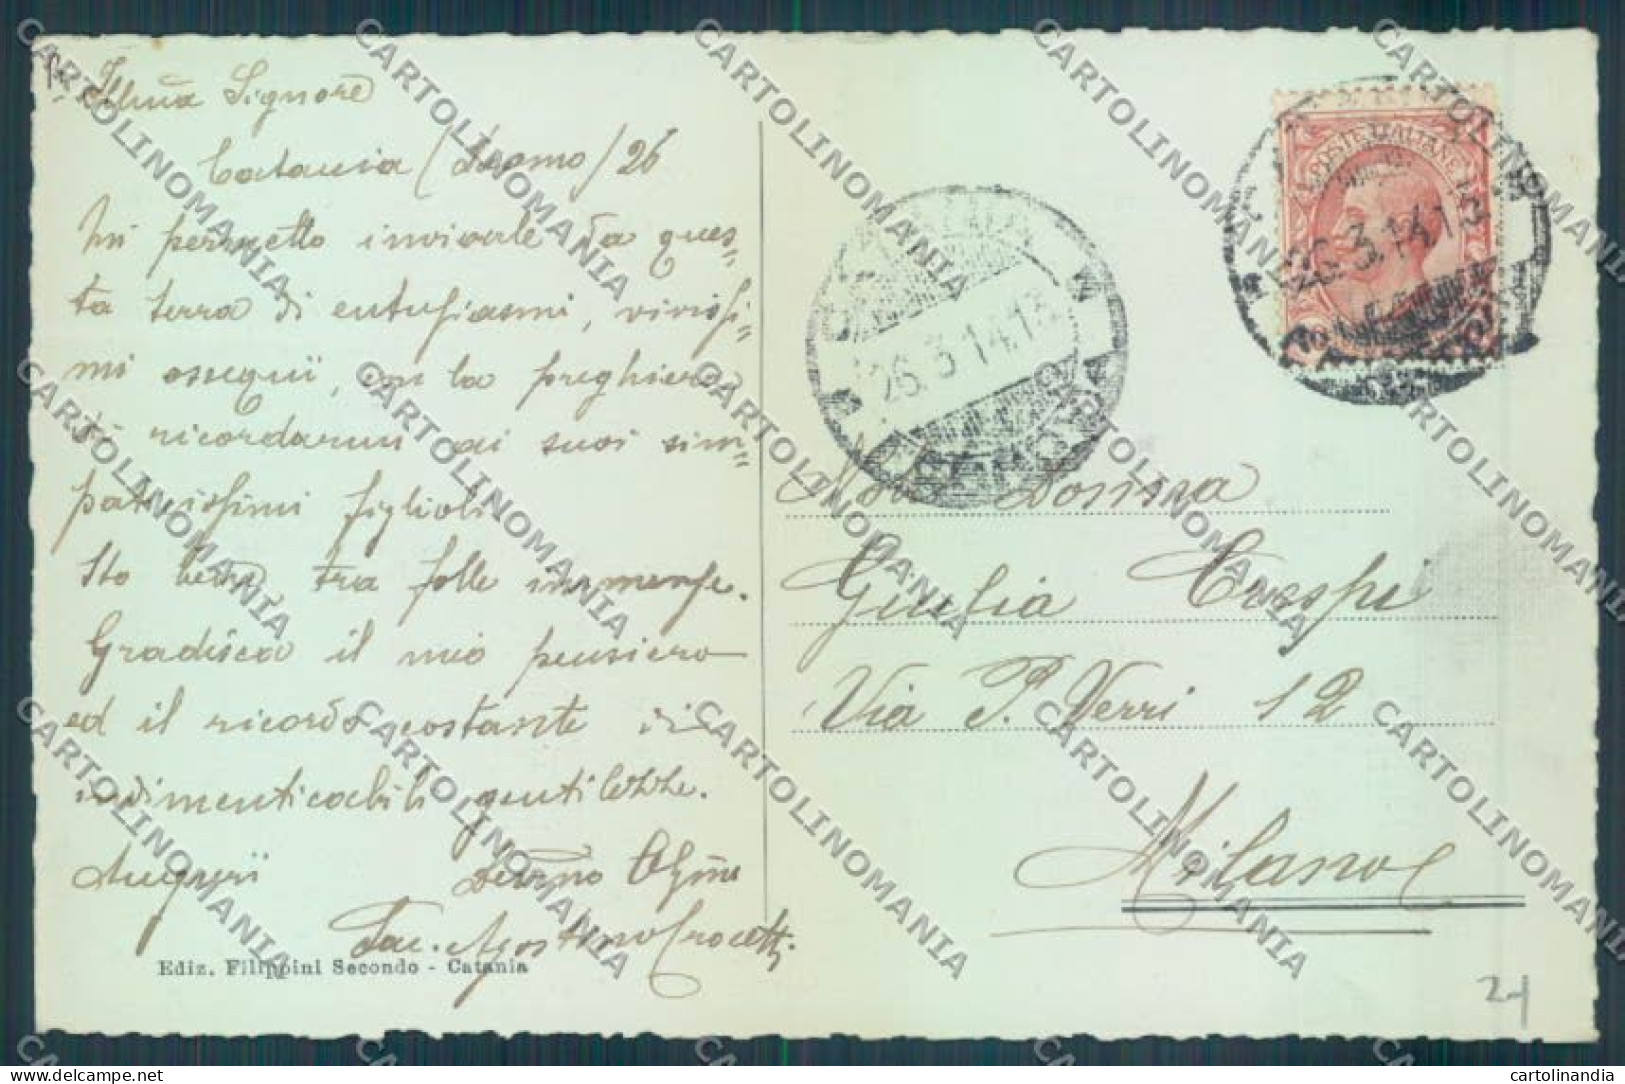 Ill.ma Signora
Catania (Duomo) 26
Mi permetto inviarle da ques=
ta terra di entusiasmi, vivissi=
mi ossequii, con la preghiera
di ricordarmi ai suoi sim=
paticissimi figlioli.
Sto bene, tra folle immense.
Gradisca il mio pensiero
ed il ricordo costante di
indimenticabili gentilezze.
Augurii
Sac. Agostino Crocetti
Ediz. Filippini Secondo - Catania
26.3.14.13
POSTE ITALIANE
26.3.14.13
Donna
Giulia Crespi
Via P. Verri 12
Milano
21
CARTOLINOMANIA
cartolinandia